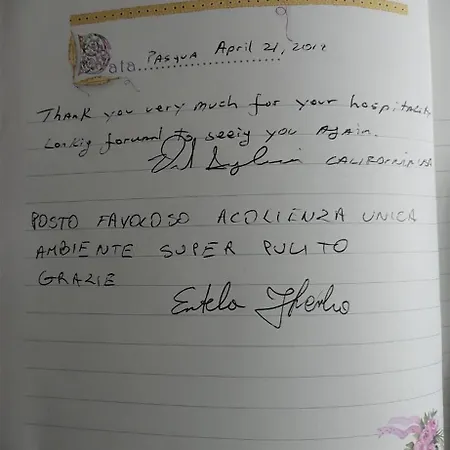 Data.................... PASQUA April 21, 2019
Thank you very much for your hospitality
Lookig forward to seeig you Again.
CALIFORNIA USA
POSTO FAVOLOSO ACOLIENZA UNICA
AMBIENTE SUPER PULITO
GRAZIE
Entela